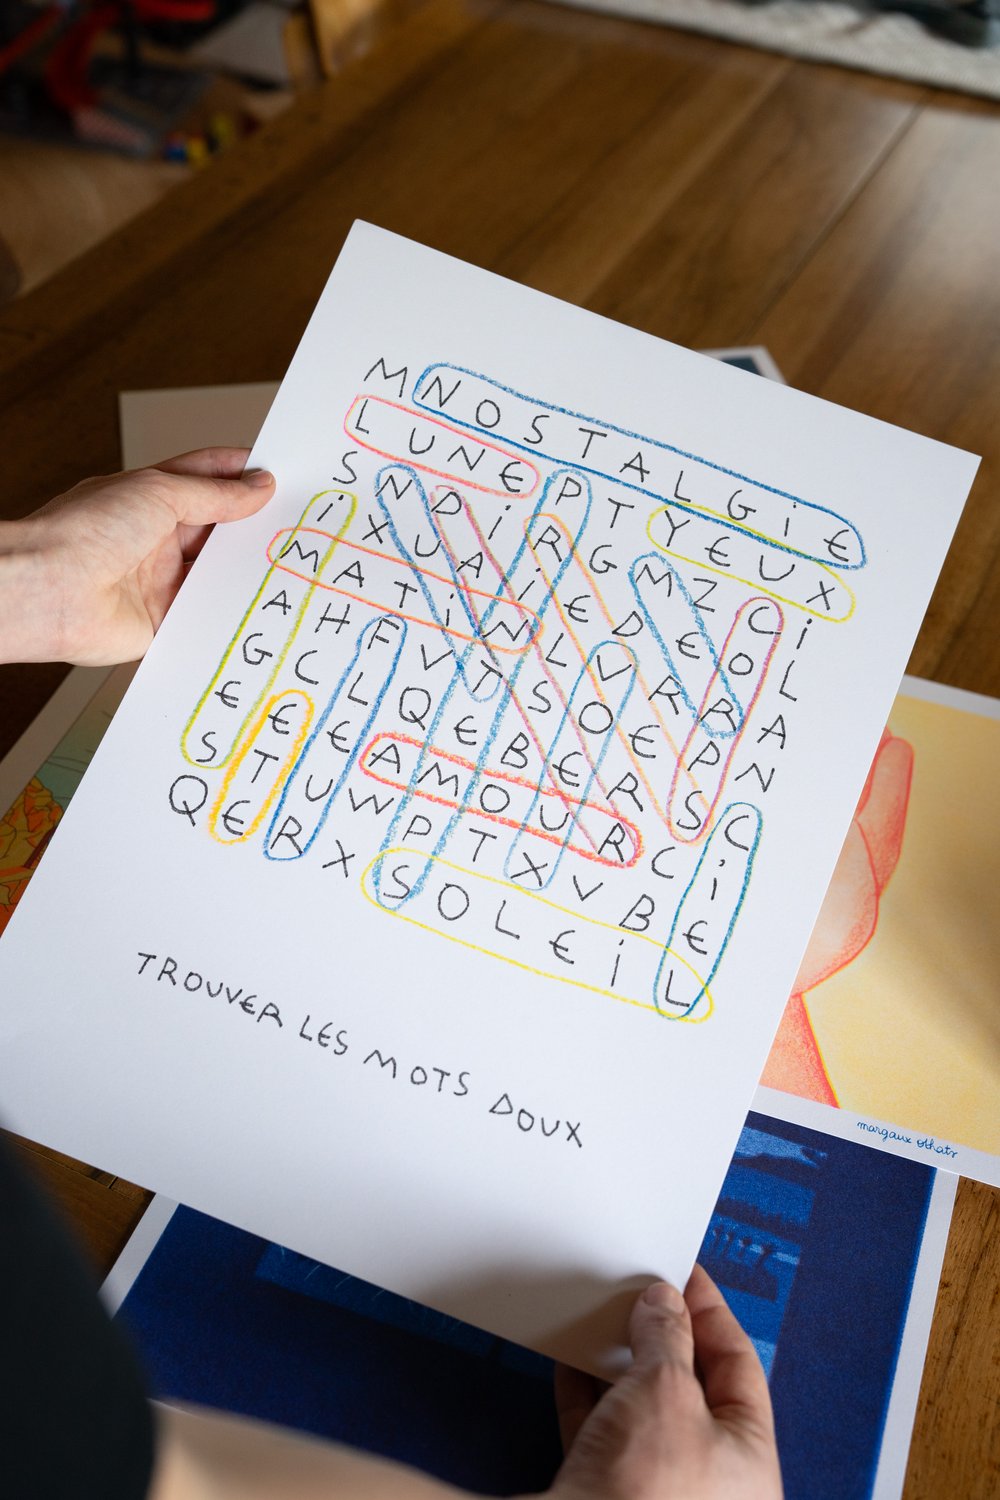 M N O S T A L G i E
L U N E P T Y E U X
S N D i R G M Z C i
i X U A i E D E O L
M A T i N L V R R A
A H F V T S O E P N
G C L Q E B E R S C
E E E A M O U R C i
S T U W P T X V B E
Q E R X S O L E i L
TROUVER LES MOTS DOUX
margaux othats